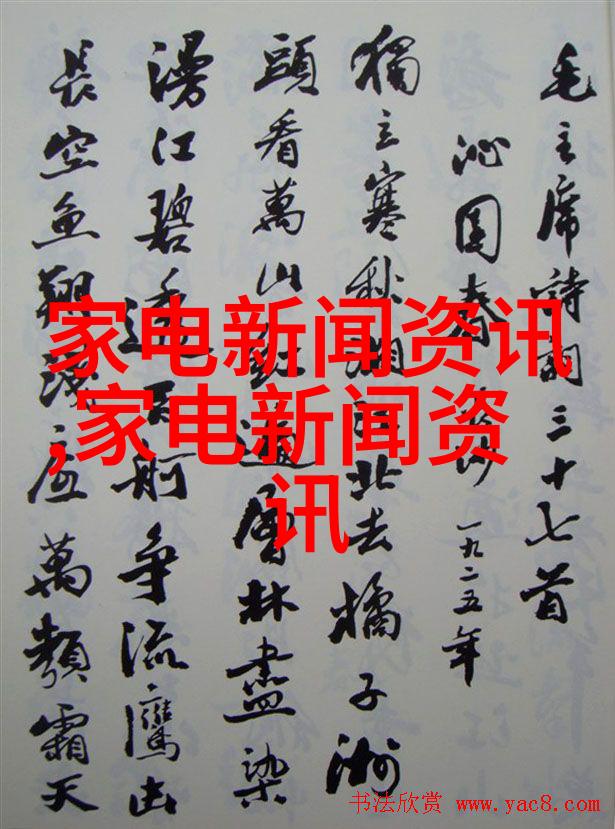 毛主席詩詞三十七首
沁园春 沙 一九二五年
獨立寒秋湘江北去橘子洲
頭看萬山紅遍層林盡染
漫江碧透百舸争流鷹击
長空魚翔淺底萬類霜天
家电新闻资讯
,家电新闻资
讯
书法欣赏 www.yac8.com